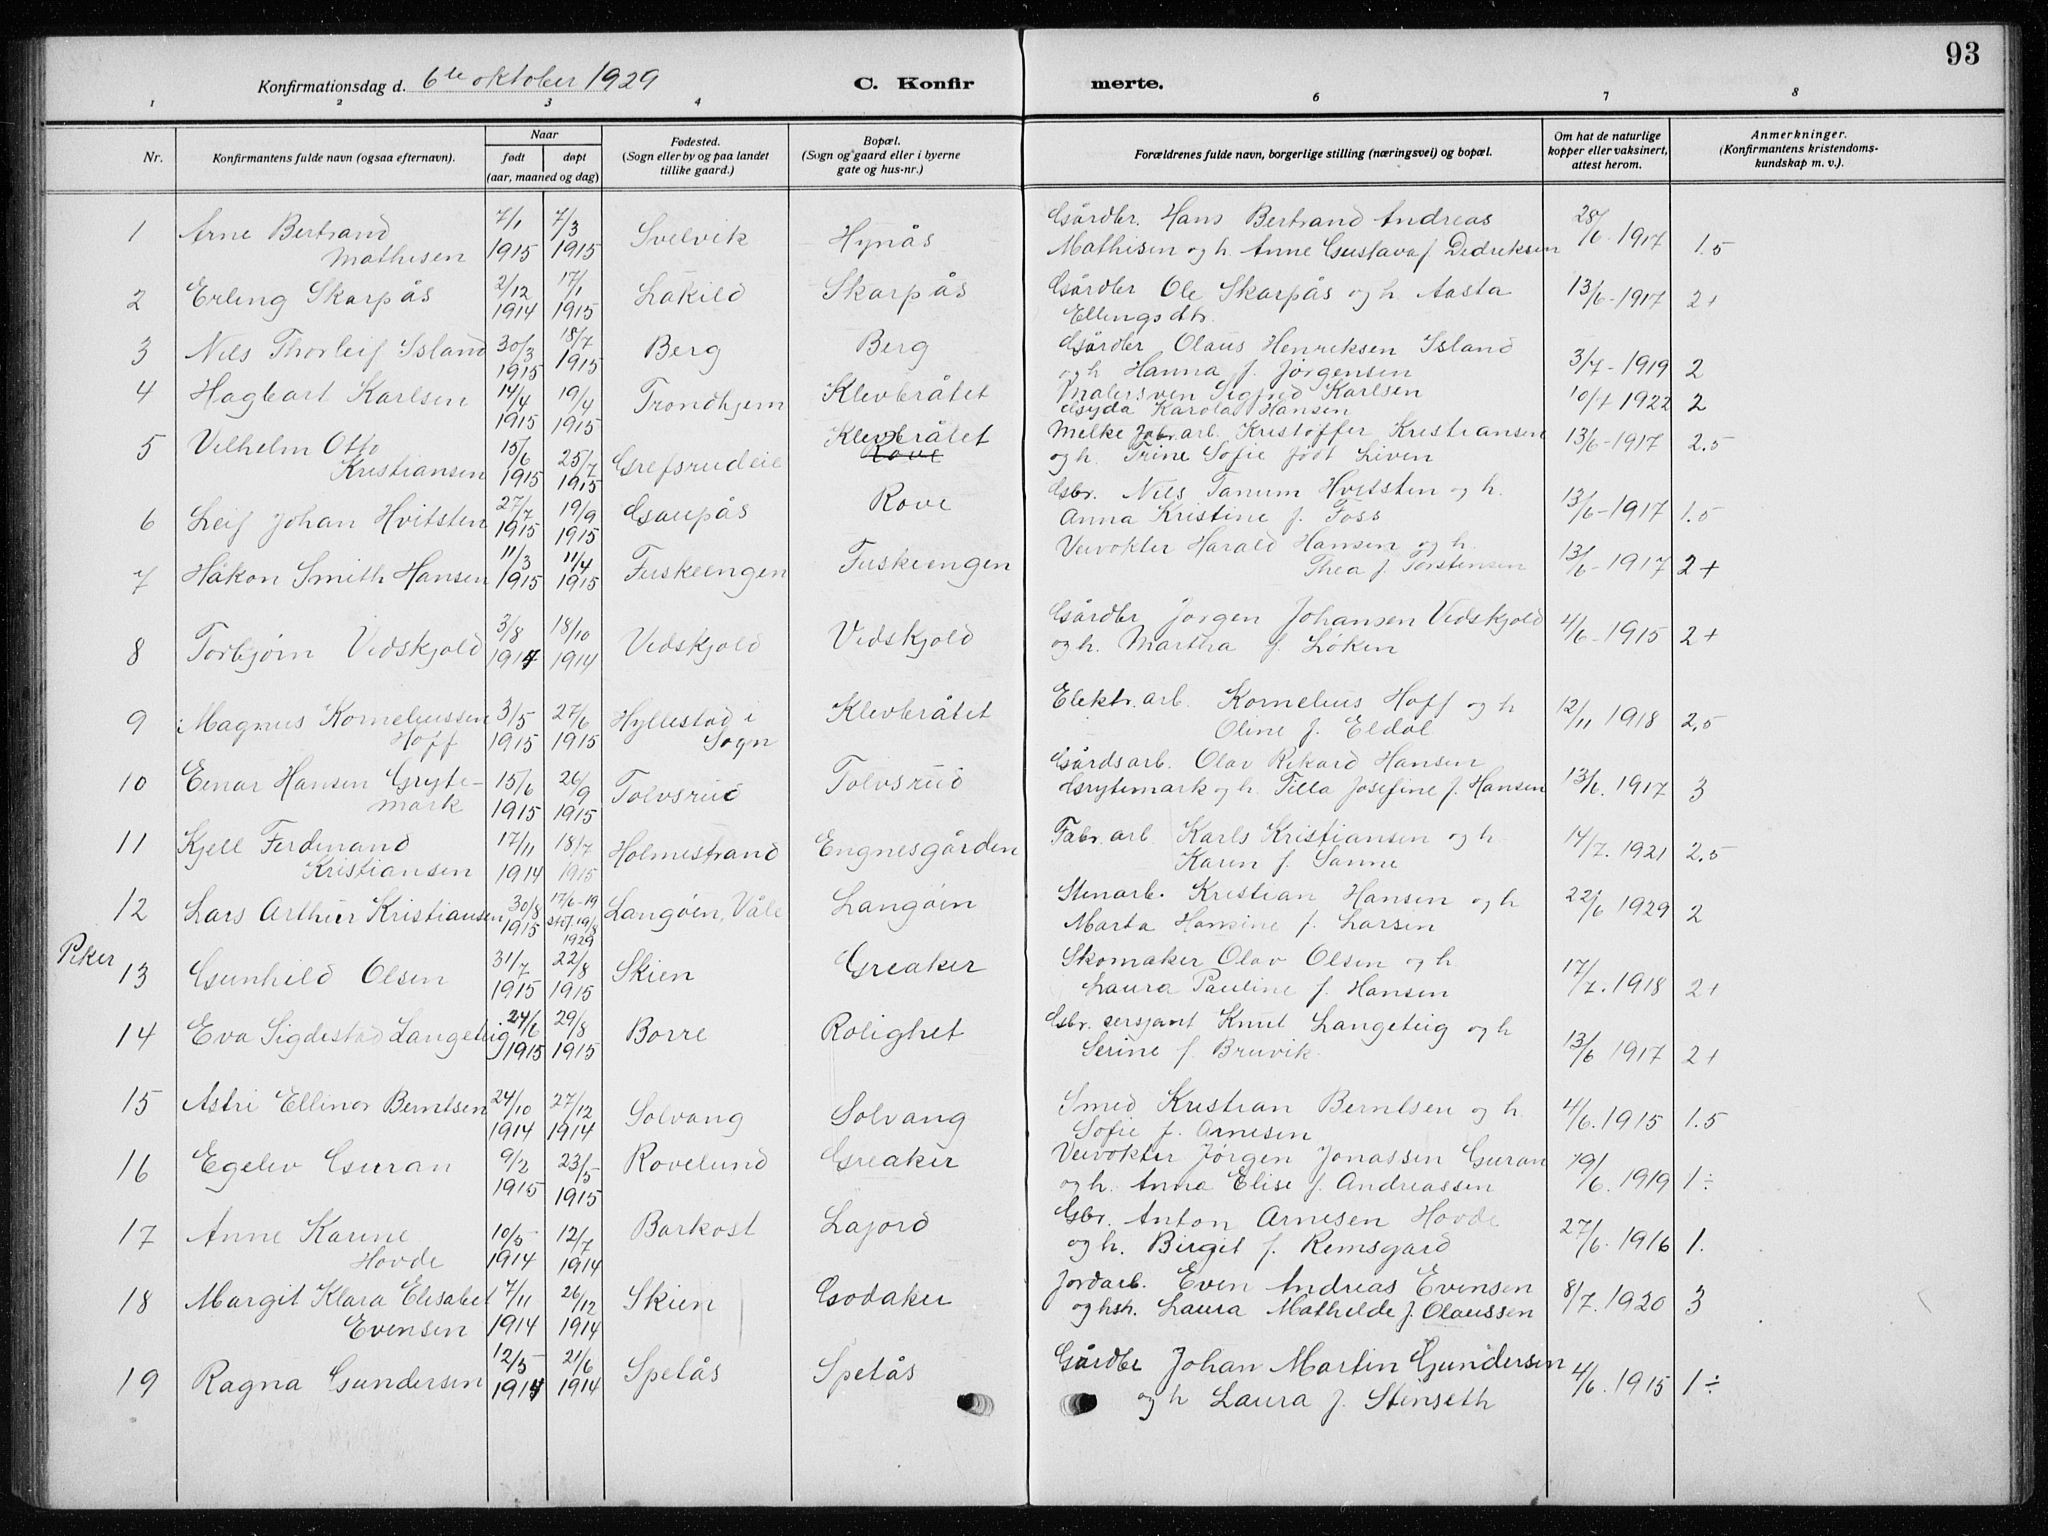 93
Konfirmationsdag d. 6te oktober 1929 C. Konfir merte.
1 2 3 4 6 7 8
Nr. Konfirmantens fulde navn (ogsaa efternavn). Naar født døpt (aar, maaned og dag) Fødested. (Sogn eller by og paa landet tillike gaard.) Bopæl. (Sogn og gaard eller i byerne gate og hus-nr.) Forældrenes fulde navn, borgerlige stilling (næringsvei) og bopæl. Om hat de naturlige kopper eller vaksinert, attest herom. Anmerkninger. (Konfirmantens kristendomskundskap m. v.).
1 Arne Bertrand Mathisen 7/1 1915 7/3 1915 Svelvik Hynås Gårdbr. Hans Bertrand Andreas Mathisen og h. Anne Gustava f Didriksen 28/6-1917 1.5
2 Erling Skarpås 2/12 1914 17/1 1915 Låkild Skarpås Gårdbr Ole Skarpås og h. Aasta Ellingsdtr. 13/6-1917 2+
3 Nils Thorleif Island 30/3 1915 18/7 1915 Berg Berg Gårdbr Olaus Henriksen Island og h Hanna f. Jørgensen 3/7-1919 2
4 Hagbart Karlsen 14/4 1915 19/4 1915 Trondhjem Klevbråtet Malersven Sigfrid Karlsen Gyda Karola Hansen 10/7 1922 2
5 Vilhelm Otto Kristiansen 15/6 1915 25/7 1915 Grefsrudeie Klevbråtet Rove Melke fabr. arb. Kristoffer Kristiansen og h. Trine Sofie født Liven 13/6-1917 2.5
6 Leif Johan Hvitsten 27/7 1915 19/9 1915 Gaupås Rove Gbr. Nils Tanum Hvitsten og h. Anna Kristine f. Foss 13/6-1917 1.5
7 Håkon Smith Hansen 11/3 1915 11/4 1915 Fuskeengen Fuskeengen Veivokter Harald Hansen og h. Thea f Torstensen 13/6-1917 2+
8 Torbjørn Vidskjold 3/8 1914 18/10 1914 Vidskjold Vidskjold Gårdbr Jørgen Johansen Vidskjold og h. Martha f. Løken 4/6-1915 2+
9 Magnus Korneliussen Hoff 3/5 1915 27/6 1915 Hyllestad i Sogn Klevbråtet Elektr. arb. Kornelius Hoff og h Oline f. Eldøl 12/11 1918 2.5
10 Einar Hansen Grytemark 15/6 1915 26/9 1915 Tolvsrud Tolvsrud Gårdsarb. Olav Rikard Hansen Grytemark og h. Tilla Josefine f. Hansen 13/6. 1917 3
11 Kjell Ferdinand Kristiansen 17/11 1914 18/7 1915 Holmestrand Engnesgården Fabr. arb Karls Kristiansen og h. Karen f. Sanne 14/7. 1921 2.5
12 Lars Arthur Kristiansen 30/8 1915 17/6-19 stf. 19/8 1929 Langøen, Våle Langøen Stenarb. Kristian Hansen og h Marta Hansine f. Larsen 22/6 1929 2
Piker
13 Gunhild Olsen 31/7 1915 22/8 1915 Skien Greaker Skomaker Olav Olsen og h. Laura Pauline f. Hansen 17/7. 1918 2+
14 Eva Sigdestad Langeteig 24/6 1915 29/8 1915 Borre Rolighet Gbr. sersjant Knut Langeteig og h Serine f. Bruvik 13/6 1917 2+
15 Astri Ellinor Berntsen 24/10 1914 27/12 1914 Solvang Solvang Smed Kristian Berntsen og h. Sofie f. Arnesen 4/6. 1915 1.5
16 Egelev Guran 9/2 1915 23/5 1915 Rovelund Greaker Veivokter Jørgen Jonassen Guran og h. Anna Elise f. Andreassen 19/6. 1919 1÷
17 Anne Karine Hovde 10/5 1914 12/7 1914 Barkost Lajord Gbr. Anton Arnesen Hovde og h. Birgit f. Remsgard 27/6. 1916 1.
18 Margit Klara Elisabet Evensen 7/11 1914 26/12 1914 Skien Godaker Jordarb. Even Andreas Evensen og hst. Laura Mathilde f. Olaussen 8/7. 1920 3
19 Ragna Gundersen 12/5 1914 21/6 1914 Spetås Spetås Gårdbr Johan Martin Gundersen og h Laura f. Stinseth 4/6. 1915 1÷